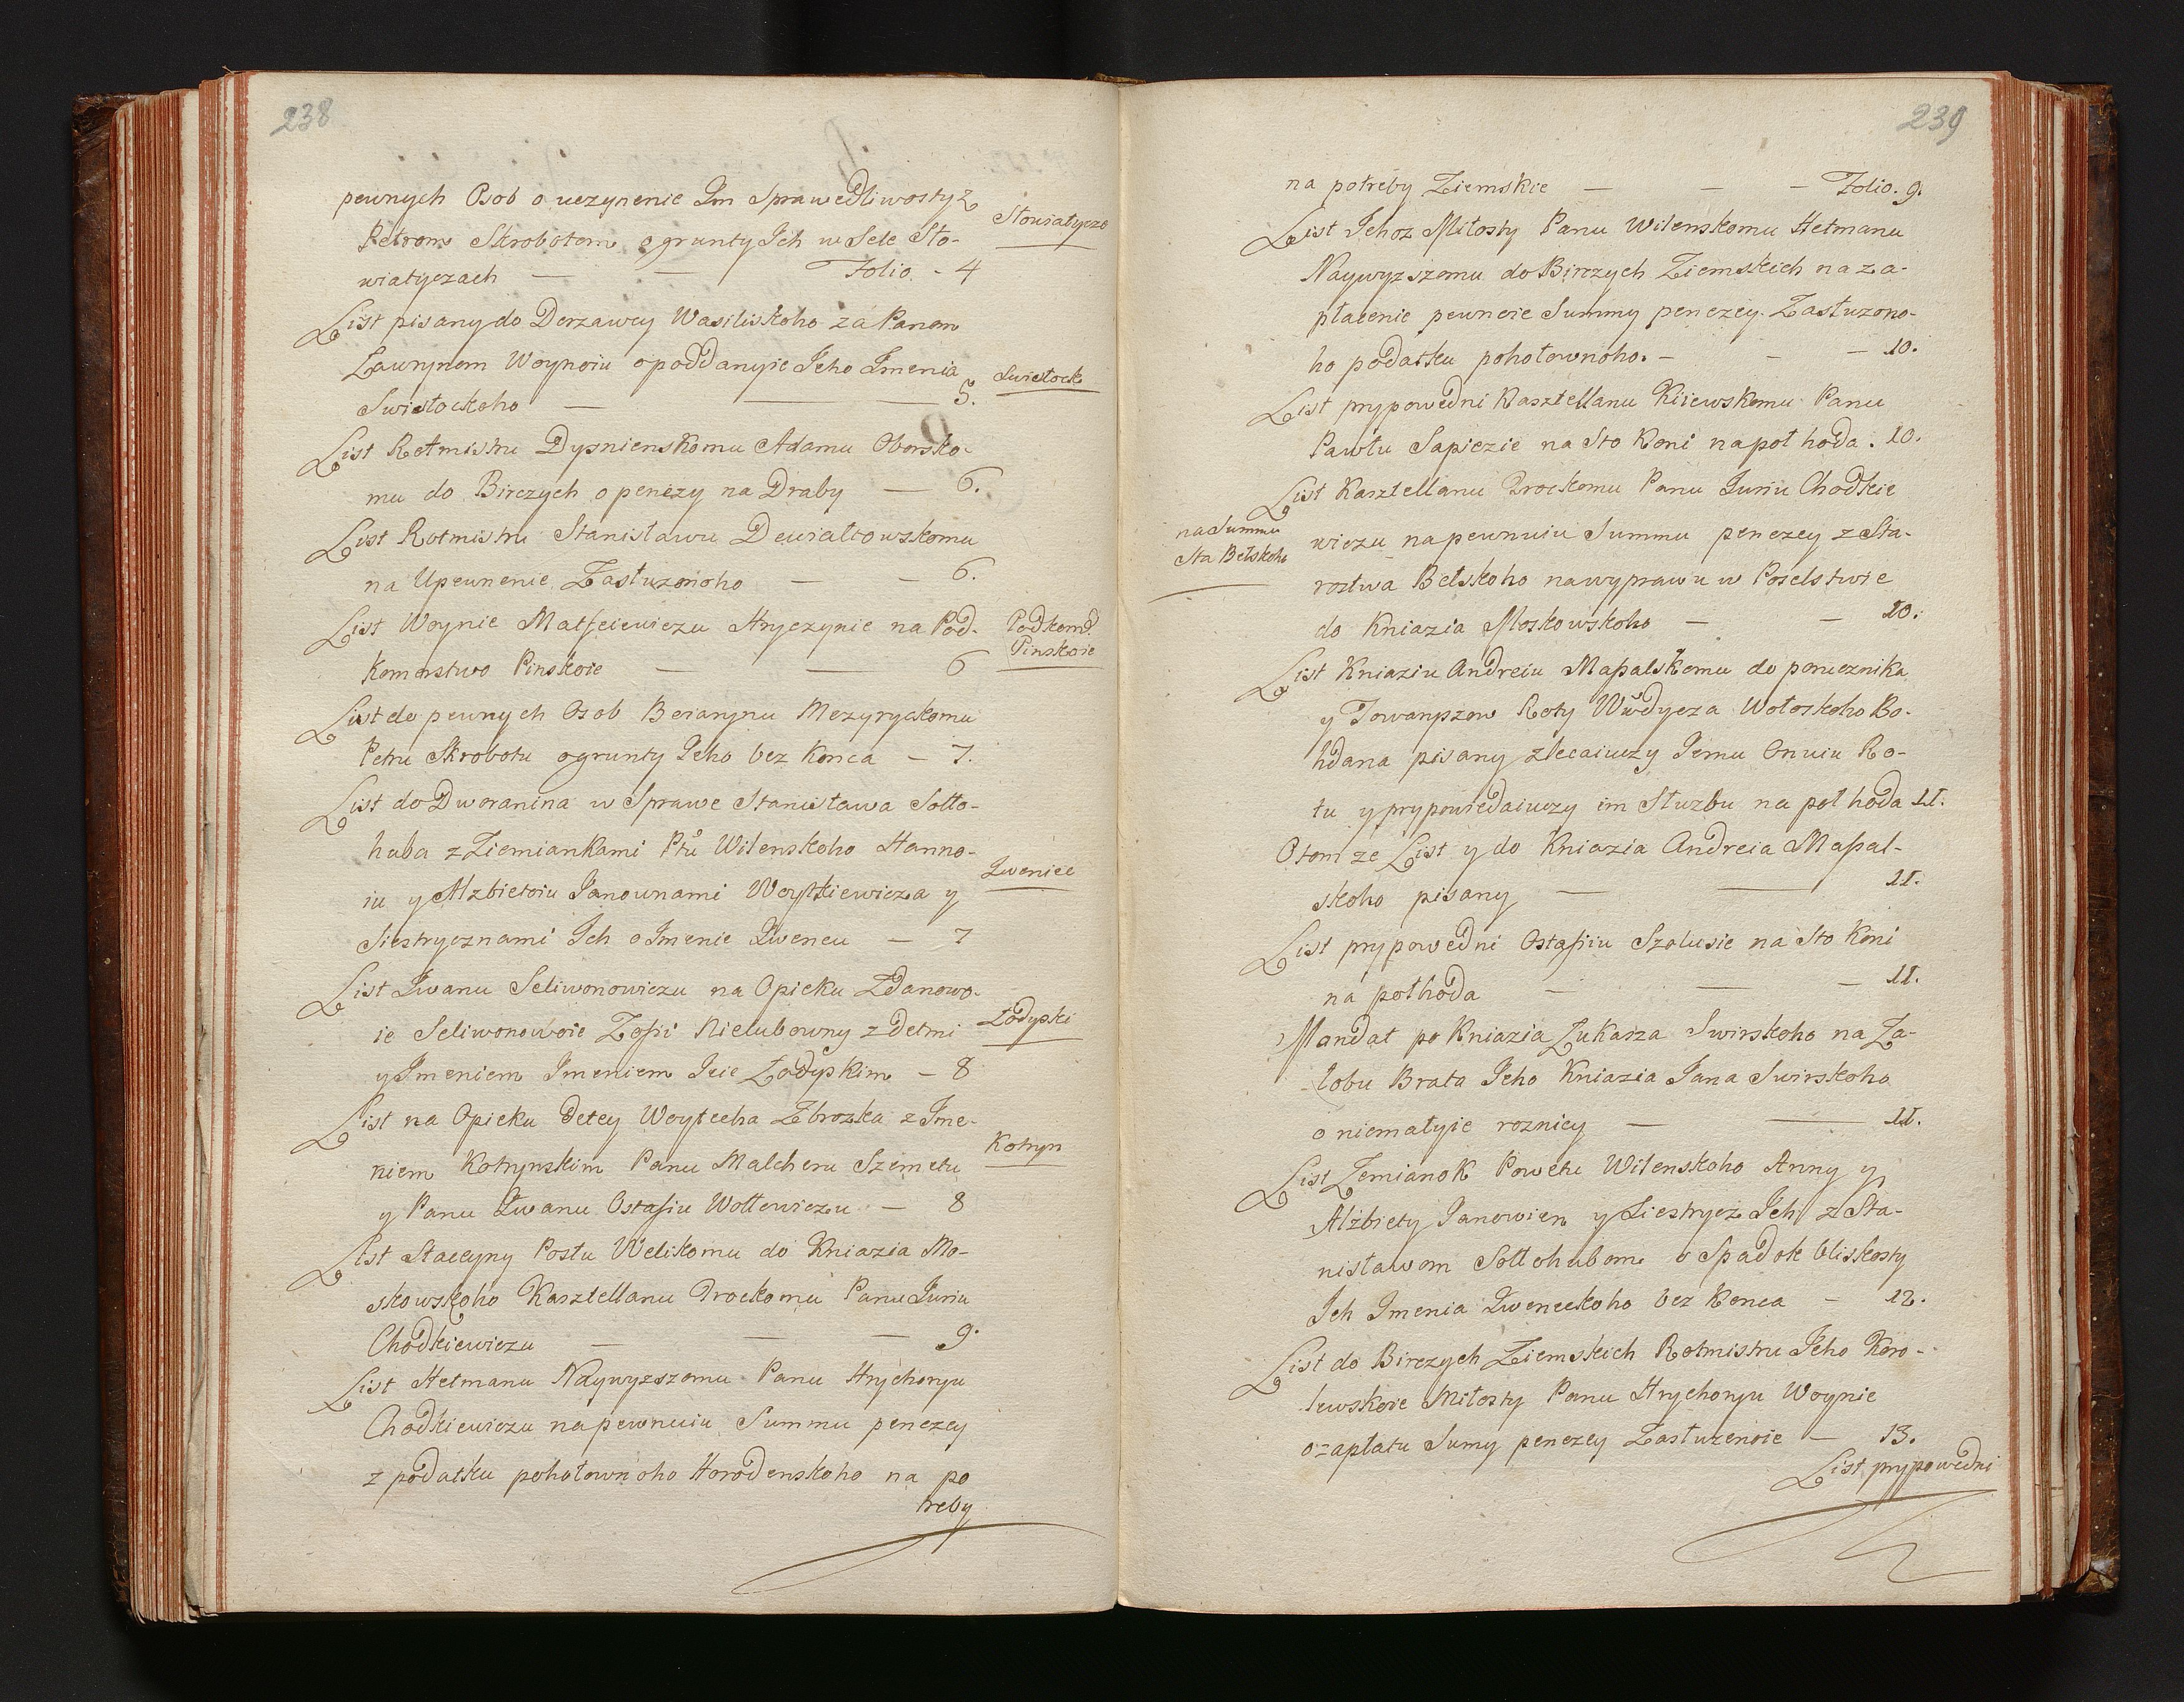 238
pewnych Osob o uczynenie Im Sprawedliwosty z
Petrom Skrobotom o grunty Ich w Sele Sło-
Słowiatycze
wiatyczach — — Folio. - 4
List pisany do Derzawcy Wasiliskoho za Panom
Ławrynom Woynoiu o poddanyie Jeho Imenia
Swisłock
Swisłockoho — — 5.
List Rotmistru Dyznienskomu Adamu Oborsko-
mu do Birczych o penezy na Draby — 6.
List Rotmistru Stanisławu Dewiałtowskomu
na Upewnenie Zasłuzonoho — — 6.
List Woynie Matfeiewiczu Hryczynie na Pod-
Podkom.
Pinskoie
Komorstwo Pinskoie — — 6
List do pewnych Osob Boiarynu Mezyryckomu
Petru Skrobotu o grunty Jeho bez Konca — 7.
List do Dworanina w Sprawe Stanisława Sołło-
huba z Ziemiankami Ptu Wilenskoho Hanno-
Iwenice
iu y Alzbietoiu Janownami Woytkiewicza y
Siestrycznami Ich o Imenie Iwencu — 7
List Iwanu Seliwonowiczu na Opieku Zdanowo-
Łodyski
ie Seliwonowoie Zofii Nielubowny z Detmi
y Imeniem Imeniem Jeie Łodyskim — 8
List na Opieku Detey Woytecha Zbrozka z Ime-
Kotryn
niem Kotrynskim Panu Malcheru Szemetu
y Panu Iwanu Ostafiu Wołłowiczu — 8
List Staccyny Posłu Welikomu do Kniazia Mo-
skowskoho Kasztellanu Trockomu Panu Iuriu
Chodkiewiczu — — — 9.
List Hetmanu Naywyzszomu Panu Hryhoryu
Chodkiewiczu na pewnuiu Summu penezey
z podatku pohołownoho Horodenskoho na po
treby
239
na potreby Ziemskie — — — Folio. 9.
List Jehoz Miłosty Panu Wilenskomu Hetmanu
Naywyzszomu do Birczych Ziemskich na za-
płacenie pewnoie Summy penezey Zasłuzono-
ho podatku pohołownoho. — — — 10.
List prypowedni Kasztellanu Kiiewskomu Panu
Pawłu Sapiezie na Sto Koni na poł hoda . 10.
List Kasztellanu Trockomu Panu Iuriu Chodkie
na Summu
Sta Bełskoho
wiczu na pewnuiu Summu penezey z Sta-
rostwa Bełskoho na wyprawu w Poselstwie
do Kniazia Moskowskoho — — 10.
List Kniaziu Andreiu Masalskomu do porucznika
y Towaryszow Roty Wodycza Wołoskoho Bo-
hdana pisany zlecaiuczy Jemu Onuiu Ro-
tu y prypowiedaiuczy im Słuzbu na poł hoda 11.
O tom ze List y do Kniazia Andreia Masal-
skoho pisany — — 11.
List prypowedni Ostafiiu Szolusie na Sto Koni
na połhoda — — — 11.
Mandat po Kniazia Łukasza Swirskoho na Za-
łobu Brata Jeho Kniazia Jana Swirskoho
o niemałyie roznicy — — 11.
List Zemianok Powetu Wilenskoho Anny y
Alżbiety Janowien y Siestrycz Ich z Sta-
nisławom Sołłohubom o Spadok bliskosty
Ich Imenia Iweneckoho bez Konca — 12.
List do Birczych Ziemskich Rotmistru Jeho Koro-
lewskoie Miłosty Panu Hryhoryu Woynie
o zapłatu Sumy penezey Zasłuzenoie — 13.
List prypowedni